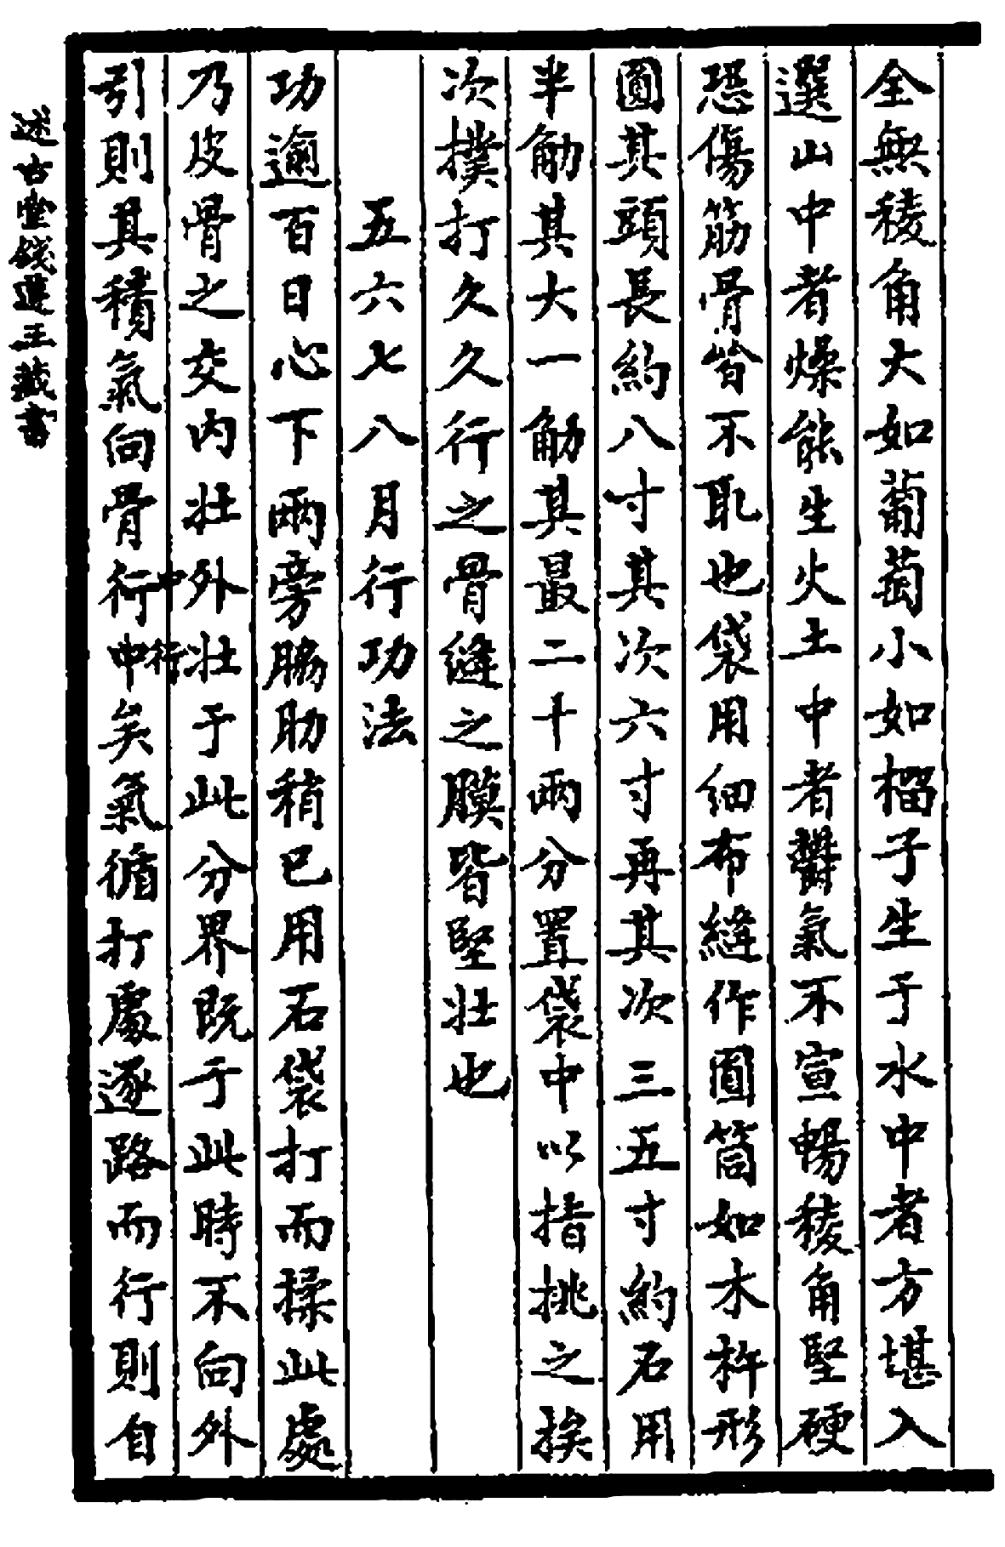 全無稜角大如葡萄小如榴子生于水中者方堪入
選山中者燥能生火土中者欝氣不宣暢稜角堅硬
恐傷筋骨皆不取也袋用細布縫作圓筒如木杵形
圓其頭長約八寸其次六寸再其次三五寸約石用
半觔其大一觔其最二十兩分置袋中以指挑之挨
次撲打久久行之骨縫之膜皆堅壯也
五六七八月行功法
功逾百日心下兩旁脇肋稍已用石袋打而揉此處
乃皮骨之交内壯外壯于此分界既于此時不向外
引則其積氣向骨衍中矣氣循打處逐路而行則自
中行
述古堂錢遵王藏書